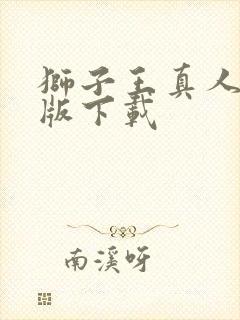 獅子王真人
版下載
南溪呀